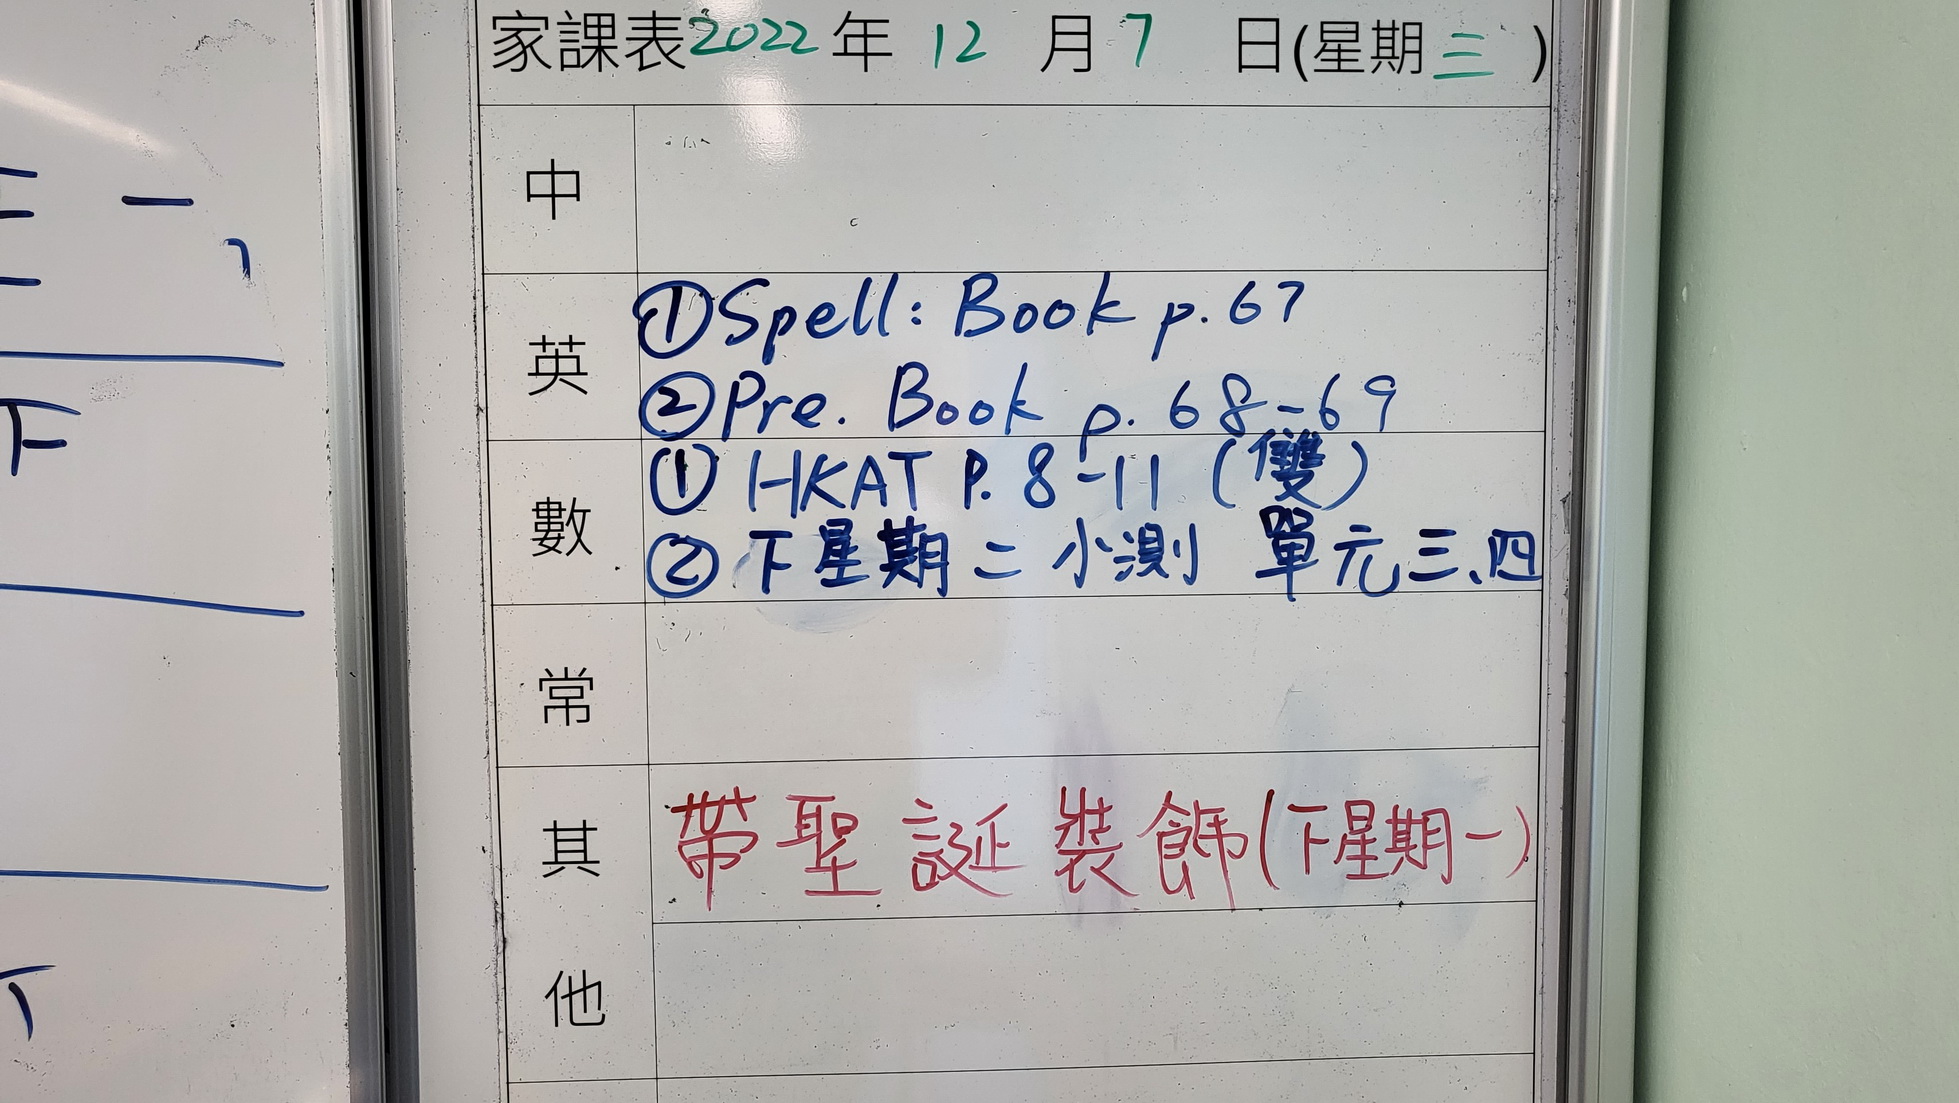 家課表2022年 12 月 7 日(星期三)
中
英
①Spell: Book p.67
②Pre. Book p. 68-69
數
① HKAT P. 8-11 (雙)
② 下星期二小測 單元三、四
常
其他
帶聖誕裝飾(下星期一)
一
下